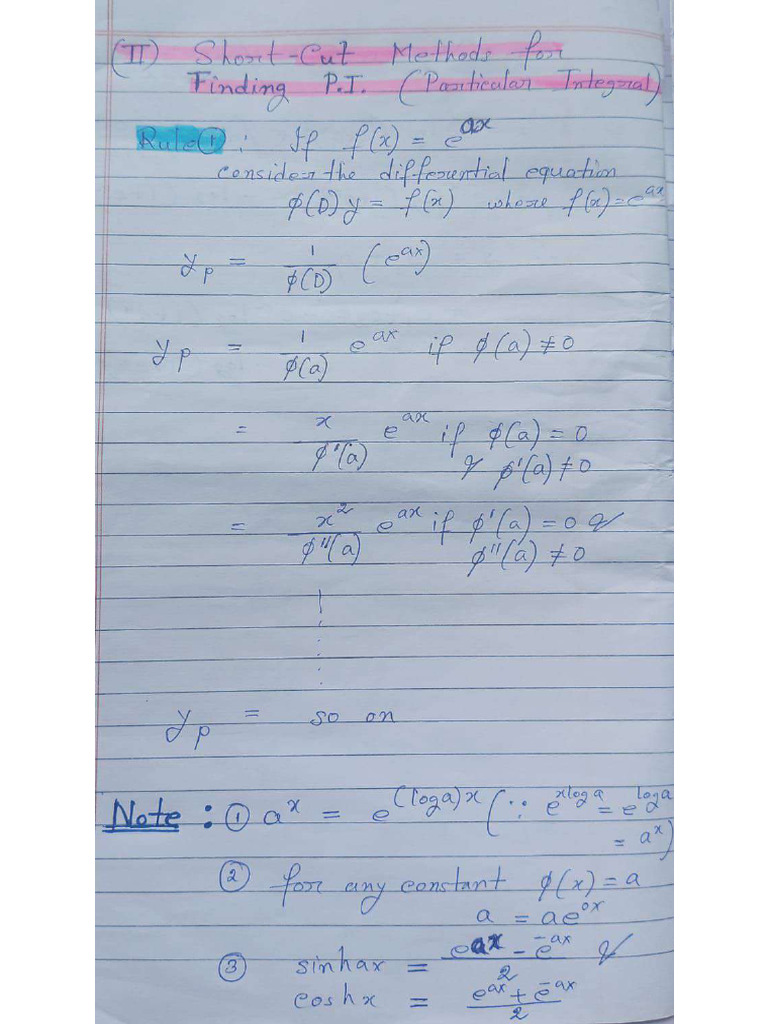 (II) Short-Cut Methods for
Finding P.I. (Particular Integral)
Rule ①: If f(x) = e^{ax}
consider the differential equation
ϕ(D) y = f(x) where f(x) = e^{ax}
y_p = 1/ϕ(D) (e^{ax})
y_p = 1/ϕ(a) e^{ax} if ϕ(a) ≠ 0
= x/ϕ'(a) e^{ax} if ϕ(a) = 0
& ϕ'(a) ≠ 0
= x^2/ϕ''(a) e^{ax} if ϕ'(a) = 0 &
ϕ''(a) ≠ 0
y_p = so on
Note : ① a^x = e^{(log a)x} (∵ e^{x log a} = e^{log a^x}
= a^x)
② for any constant ϕ(x) = a
a = ae^{0x}
③ sinhax = (e^{ax} - e^{-ax})/2 &
coshx = (e^{ax} + e^{-ax})/2